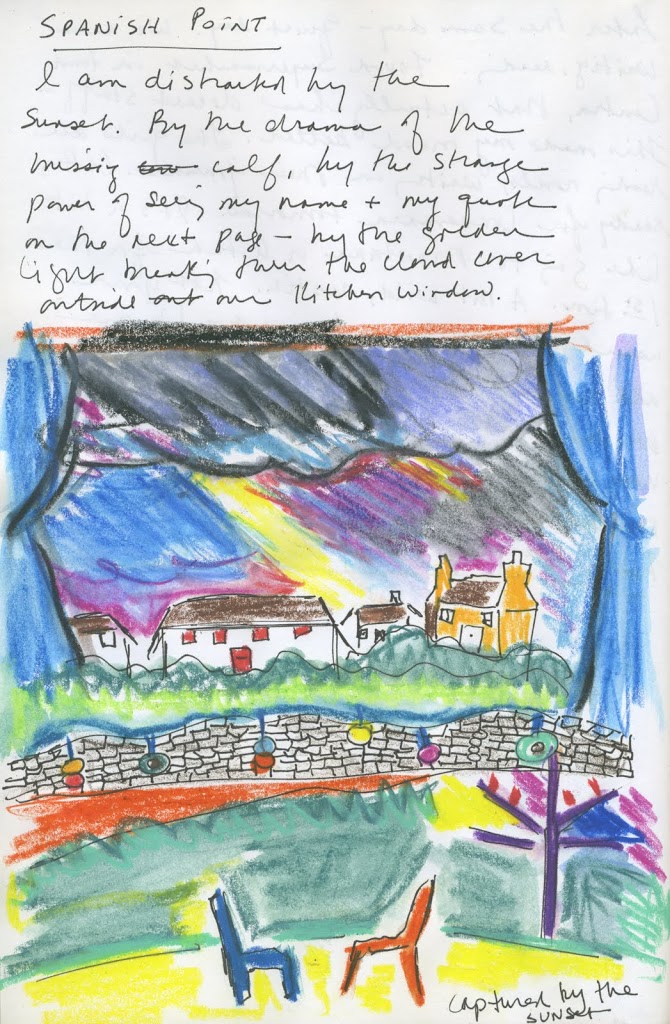 SPANISH POINT
I am distracted by the
Sunset. By the drama of the
missing calf, by the strange
power of seeing my name + my quote
on the next page – by the golden
light breaking thru the cloud cover
outside our kitchen window.
captured by the
sunset